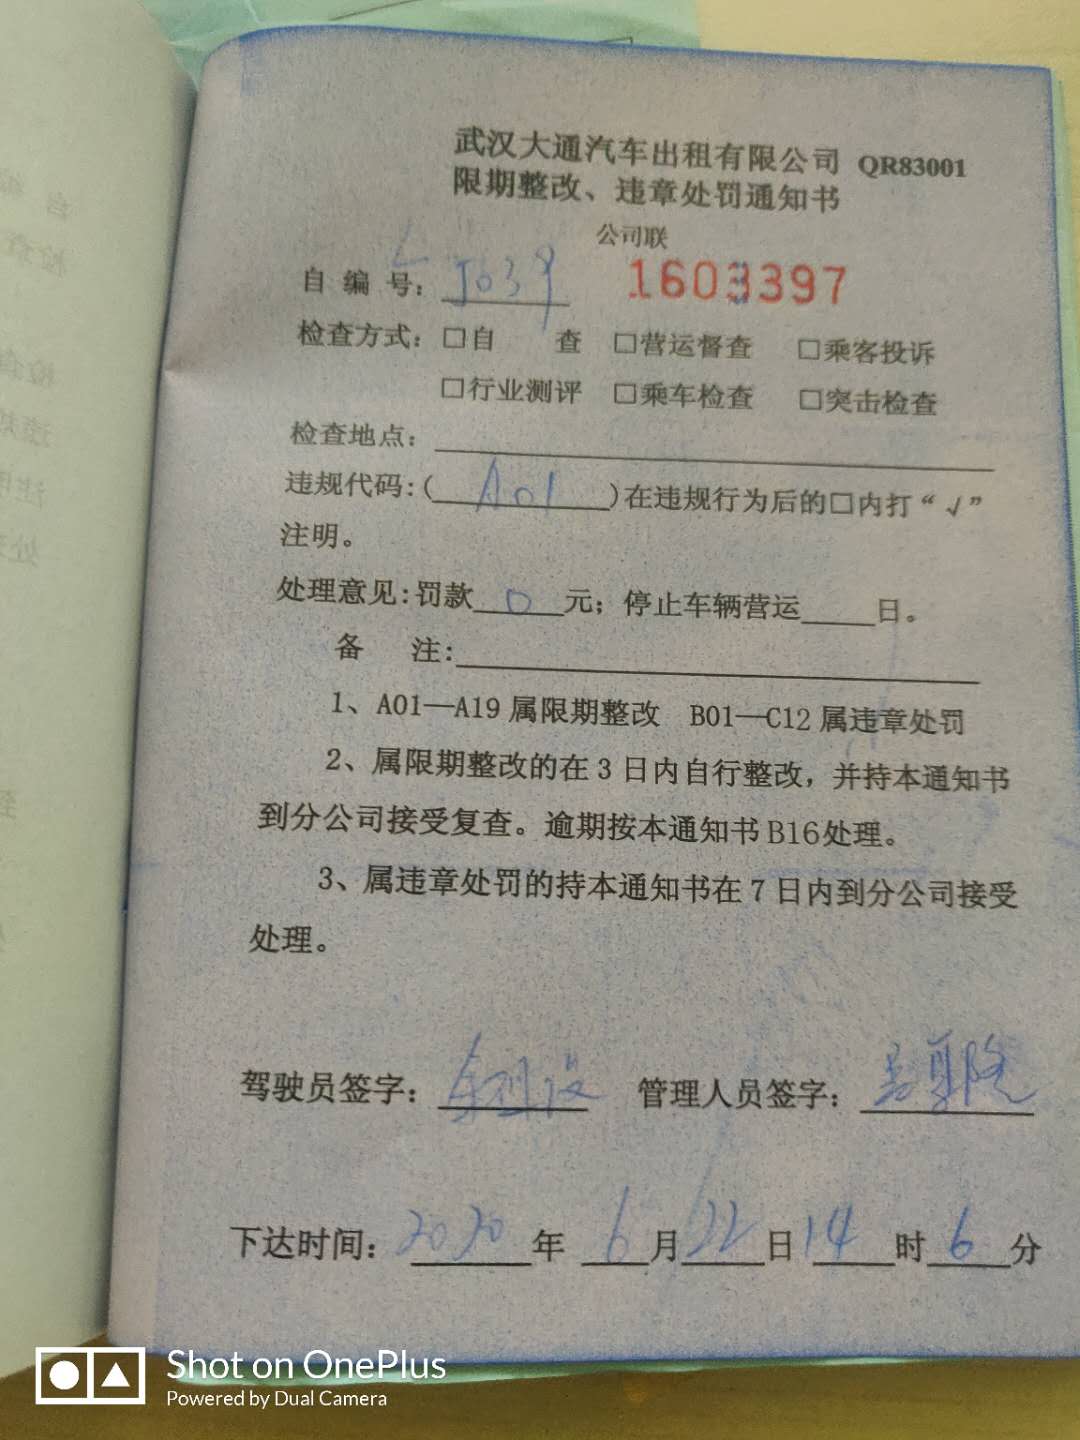 武汉大通汽车出租有限公司 QR83001
限期整改、违章处罚通知书
公司联
自 编 号: J039 1603397
检查方式: □自 查 □营运督查 □乘客投诉
□行业测评 □乘车检查 □突击检查
检查地点:
违规代码:( A01 )在违规行为后的□内打“√”
注明。
处理意见:罚款 0 元；停止车辆营运 日。
备 注:
1、A01—A19 属限期整改 B01—C12 属违章处罚
2、属限期整改的在 3 日内自行整改，并持本通知书
到分公司接受复查。逾期按本通知书 B16 处理。
3、属违章处罚的持本通知书在 7 日内到分公司接受
处理。
驾驶员签字: 管理人员签字:
下达时间: 2020 年 6 月 22 日 14 时 6 分
Shot on OnePlus
Powered by Dual Camera